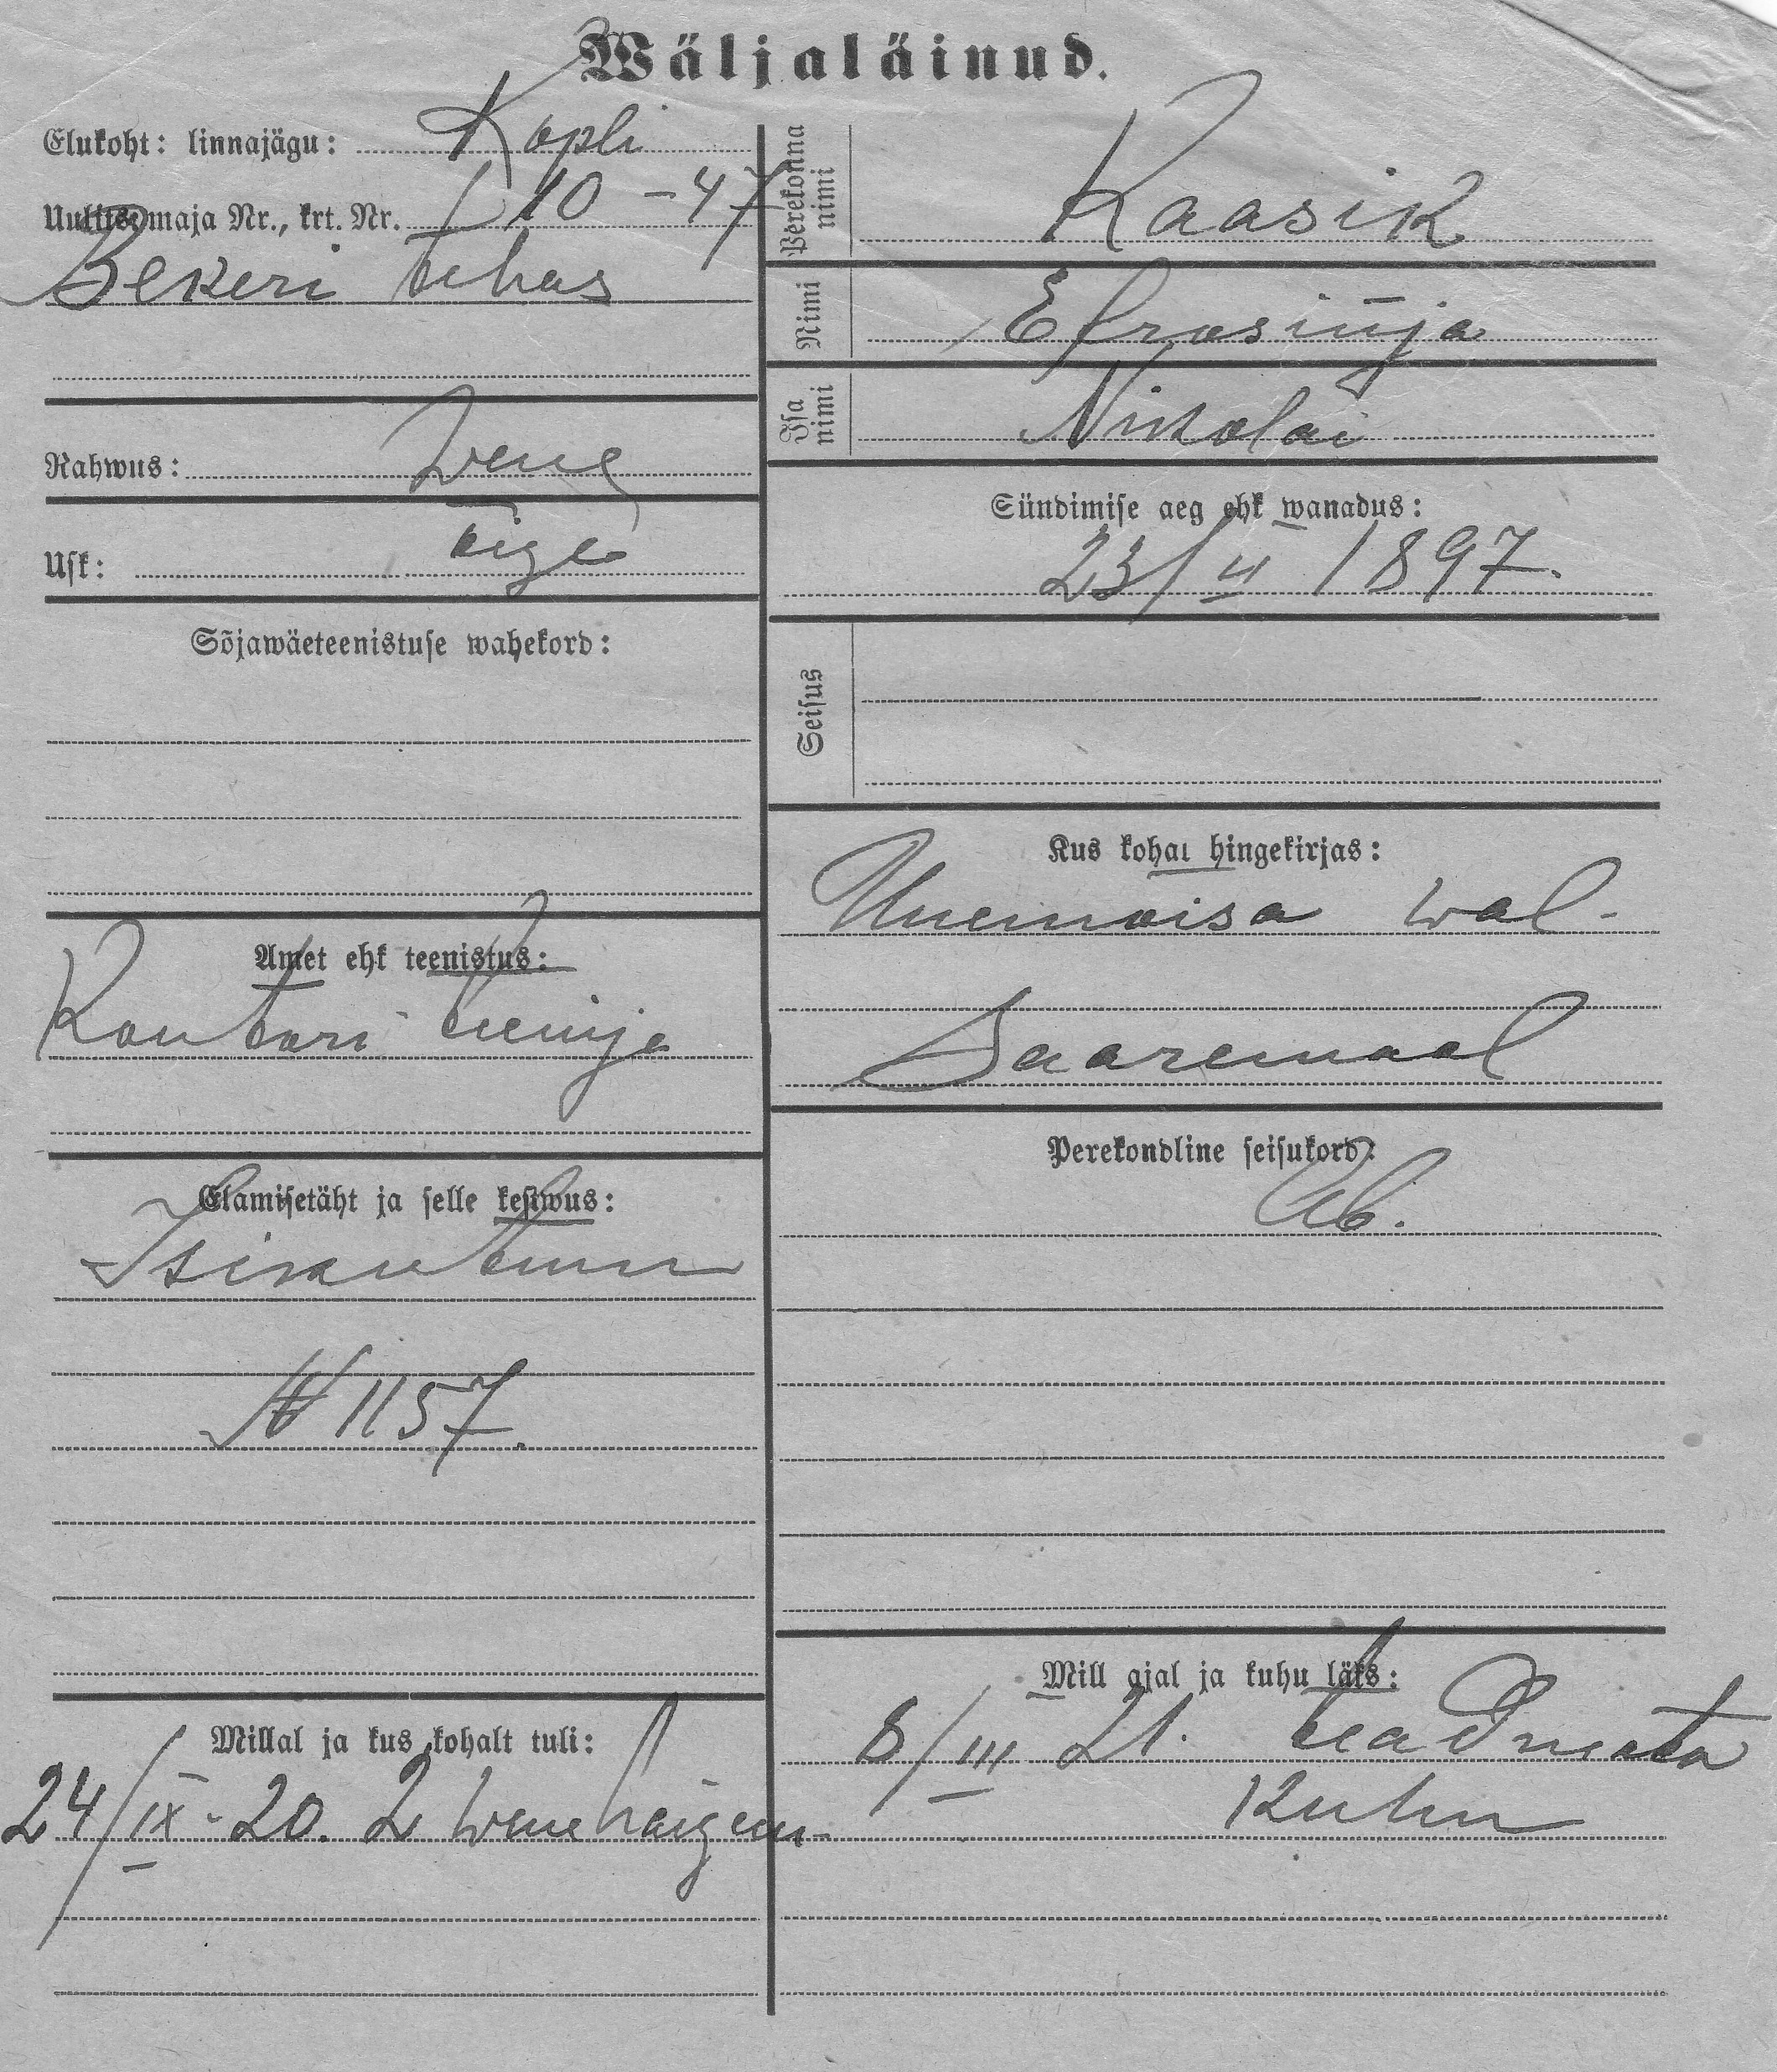 Wäljaläinud.
Elukoht: linnajägu: Kopli
Uulitse maja Nr., krt. Nr. 10 - 47
Bekeri tehas
Rahwus: Wene
Usk: õige
Sõjawäeteenistuse wahekord:
Amet ehk teenistus:
Kontori teenija
Elamisetäht ja selle kestwus:
Isikutunn
№ 1157.
Millal ja kus kohalt tuli:
24/IX - 20. Wene haigem-
Perekonna nimi
Kaasik
Nimi
Efrosinja
Isa nimi
Nikolai
Sündimise aeg ehk wanadus:
23/II 1897.
Seisus
Kus kohal hingekirjas:
Uuemõisa wal.
Saaremaal
Perekondline seisukord:
Ab.
Mill ajal ja kuhu läks:
8/III 21. teadmata
kuhu